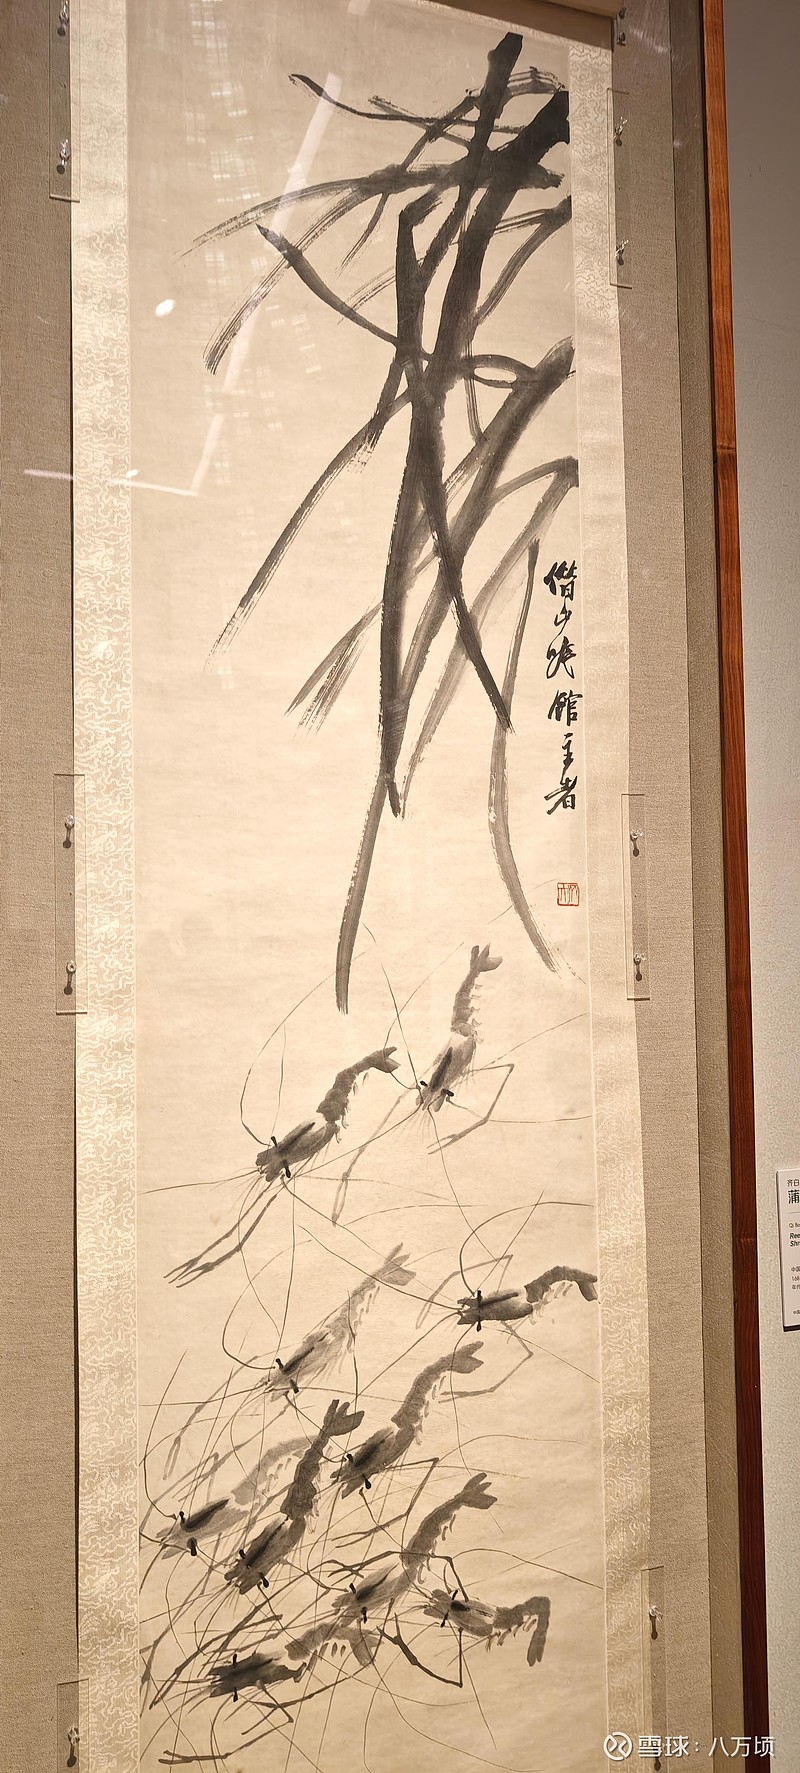 借山吟館主者
齐白
蒲
Qi Ba
Ree
Shr
中国
168
雪球：八万顷